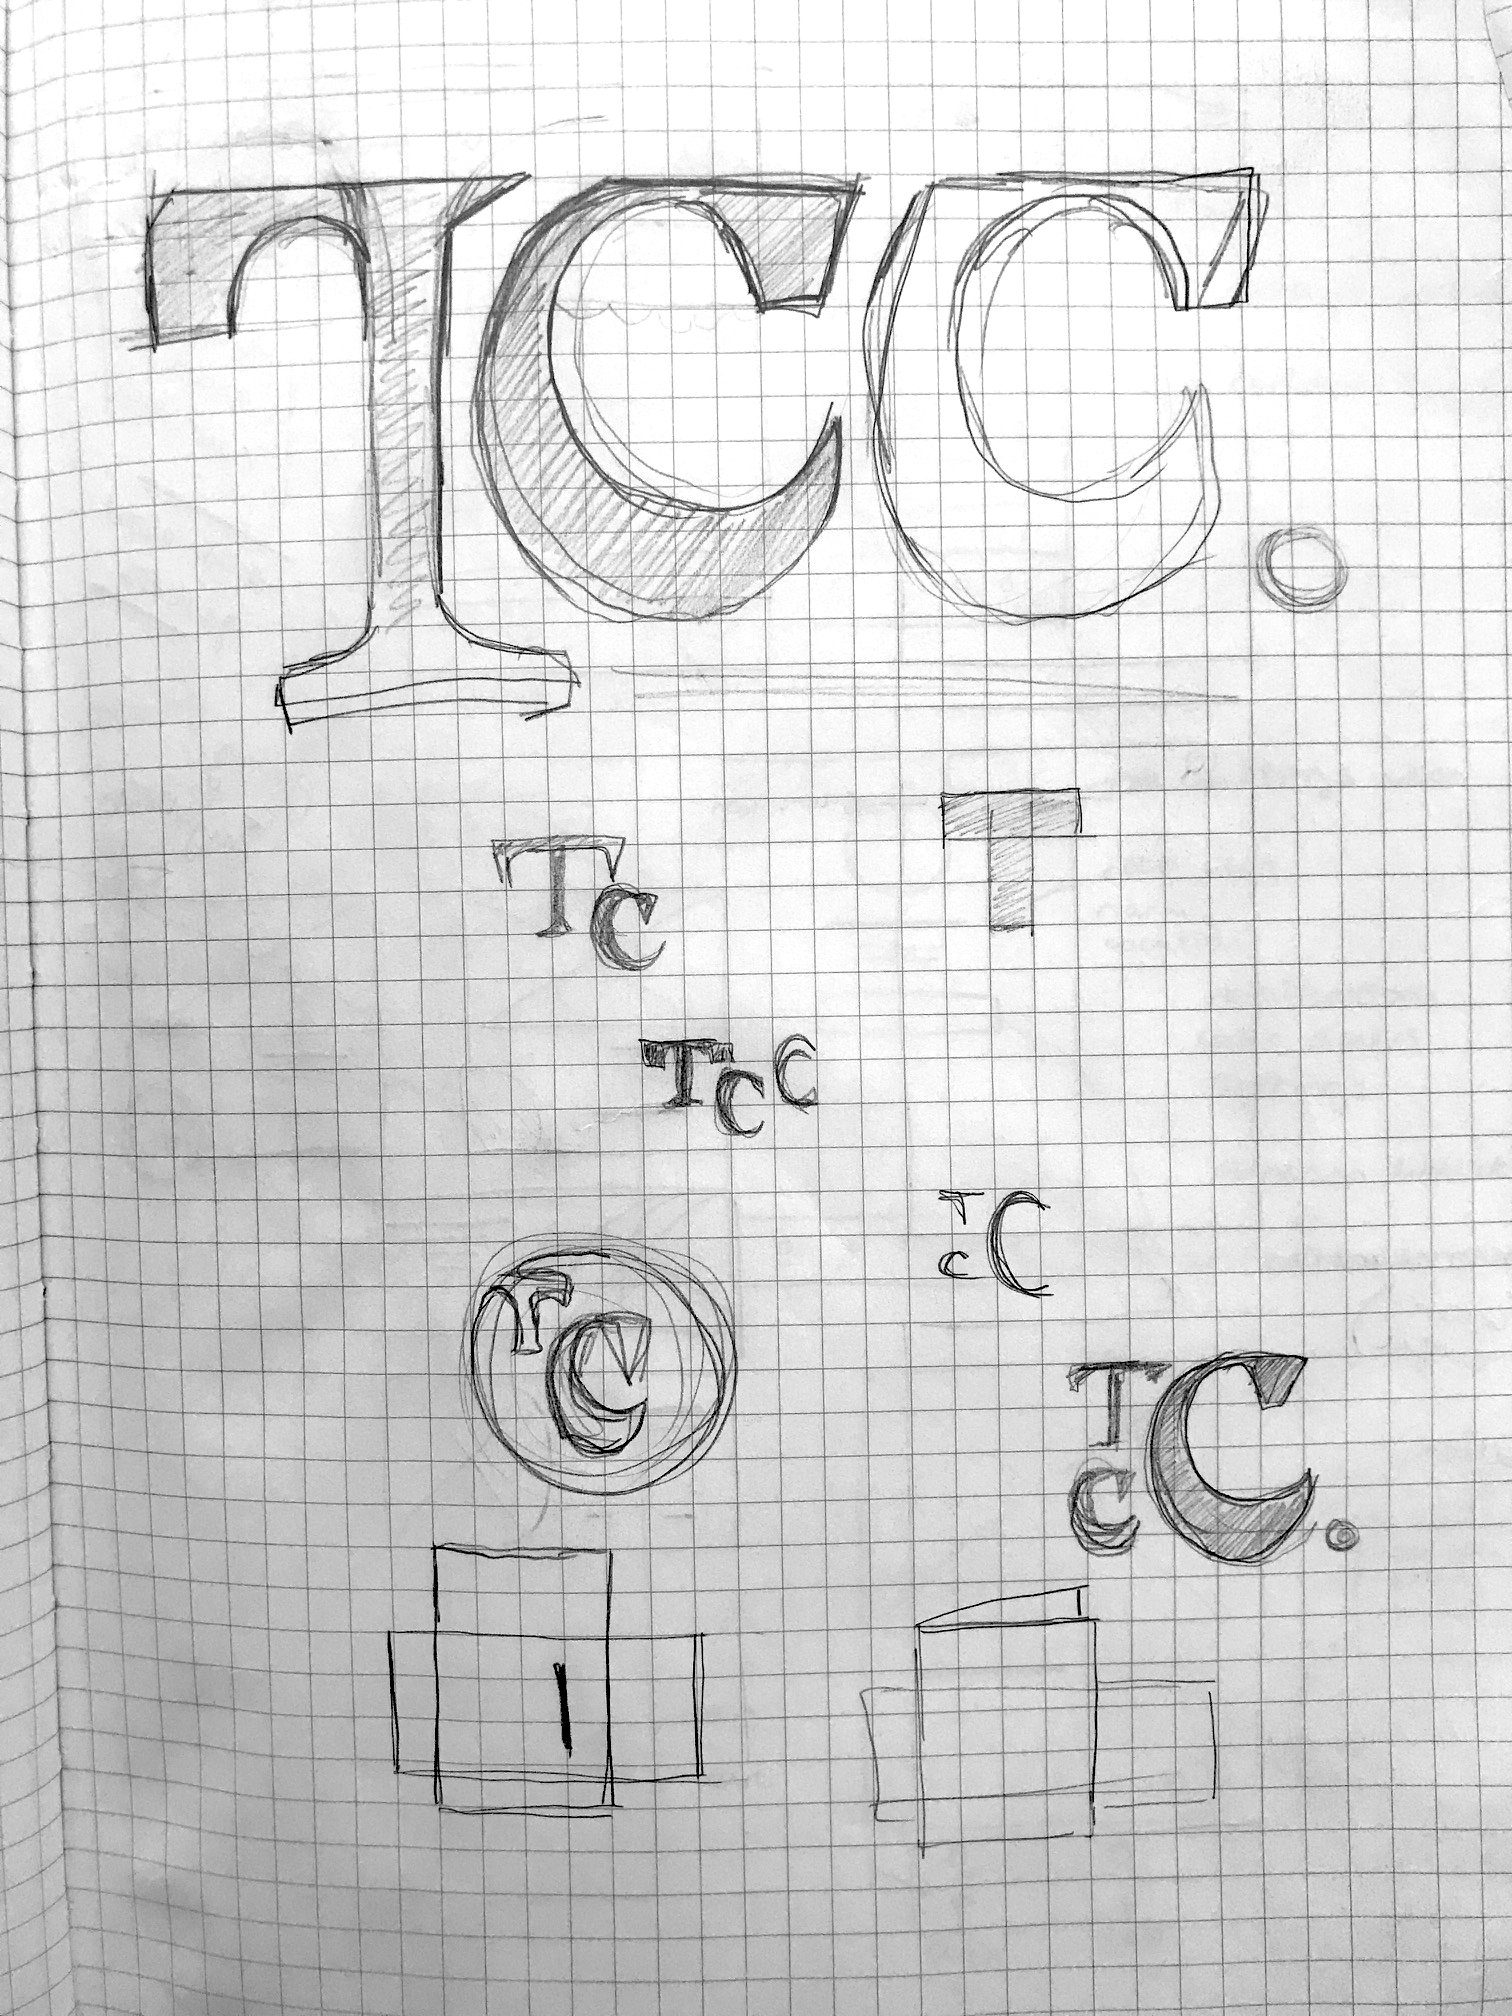 TCC.
TC
T
TCC
TC
C
TC
TC
C.